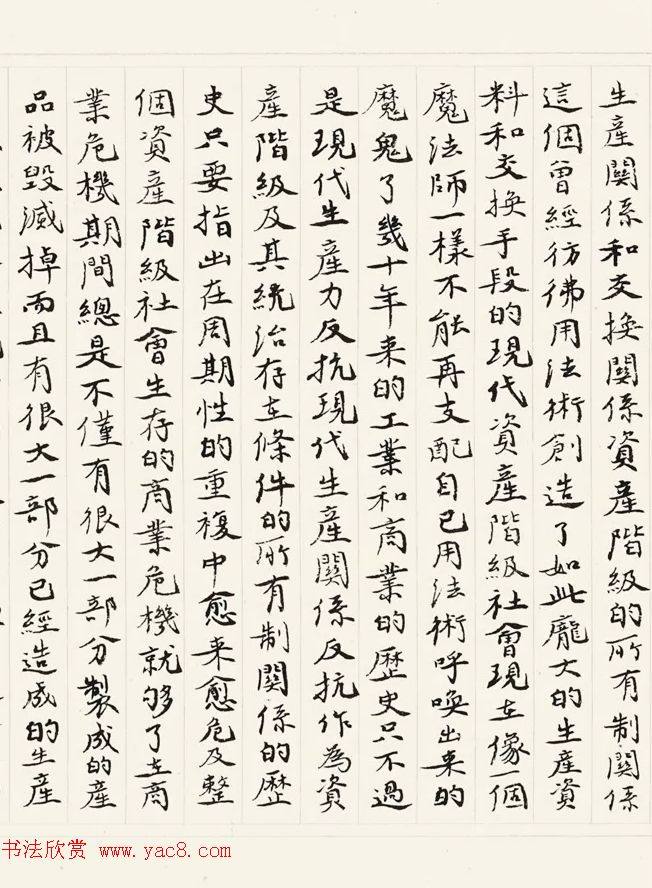 生產關係和交換關係資產階級的所有制關係
這個曾經彷彿用法術創造了如此龐大的生產資
料和交換手段的現代資產階級社會現在像一個
魔法師一樣不能再支配自己用法術呼喚出來的
魔鬼了幾十年來的工業和商業的歷史只不過
是現代生產力反抗現代生產關係反抗作為資
產階級及其統治存在條件的所有制關係的歷
史只要指出在周期性的重複中愈来愈危及整
個資產階級社會生存的商業危機就够了在商
業危機期間總是不僅有很大一部分製成的產
品被毀滅掉而且有很大一部分已經造成的生產
书法欣赏 www.yac8.com